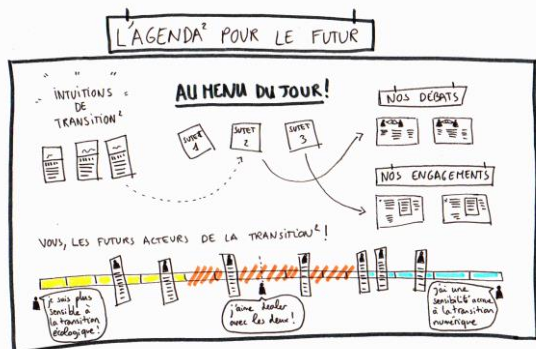 L'AGENDA² POUR LE FUTUR
INTUITIONS
DE
TRANSITION²
AU MENU DU JOUR!
SUJET
1
SUJET
2
SUJET
3
NOS DÉBATS
NOS ENGAGEMENTS
VOUS, LES FUTURS ACTEURS DE LA TRANSITION²!
je suis plus
sensible à
la transition
écologique!
j'aime dealer
avec les deux!
j'ai une
sensibilité accrue
à la transition
numérique